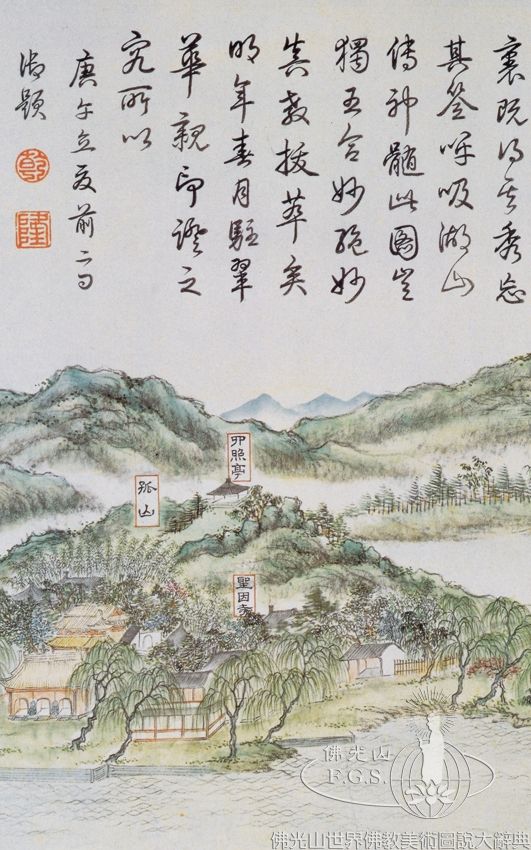 裏既得其秀忘
其筌呼吸湖山
傳神髓此圖豈
獨五合妙絶妙
真教拔萃矣
明年春月駐翠
華親印證之
究所以
庚午立夏前日
御題
乾
隆
照亭
孤山
聖因寺
佛光山
F.G.S.
佛光山世界佛教美術圖說大辭典